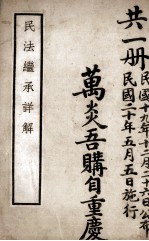 共一册
民國十九年十二月二十六日公布
民國二十年五月五日施行
萬炎吾購自重慶
民法繼承詳解